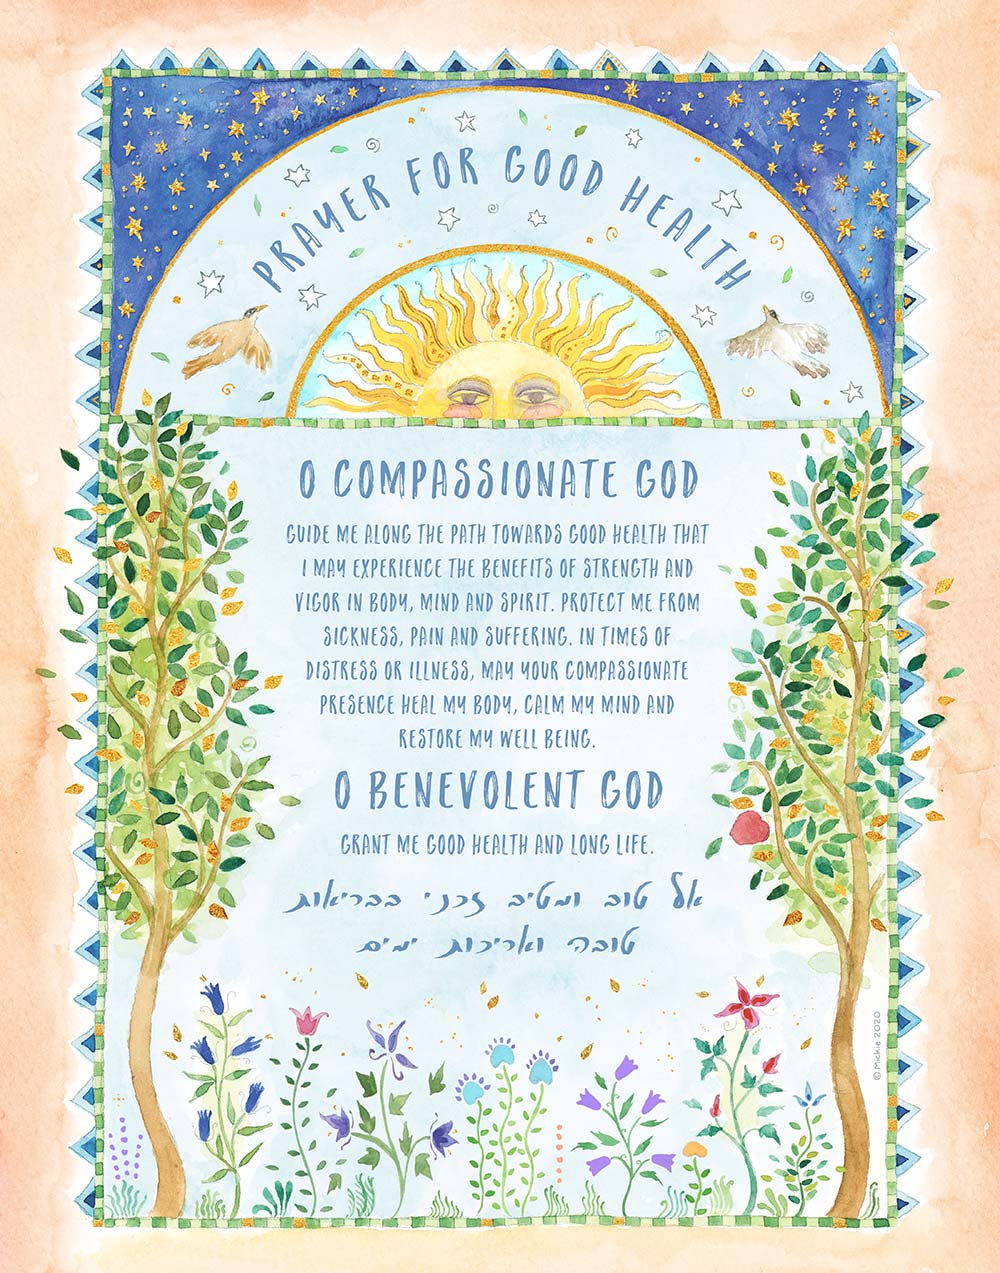 PRAYER FOR GOOD HEALTH
O COMPASSIONATE GOD
GUIDE ME ALONG THE PATH TOWARDS GOOD HEALTH THAT
I MAY EXPERIENCE THE BENEFITS OF STRENGTH AND
VIGOR IN BODY, MIND AND SPIRIT. PROTECT ME FROM
SICKNESS, PAIN AND SUFFERING. IN TIMES OF
DISTRESS OR ILLNESS, MAY YOUR COMPASSIONATE
PRESENCE HEAL MY BODY, CALM MY MIND AND
RESTORE MY WELL BEING.
O BENEVOLENT GOD
GRANT ME GOOD HEALTH AND LONG LIFE.
אל טוב ומטיב זכני בבריאות
טובה ואריכות ימים
© Mickie 2020